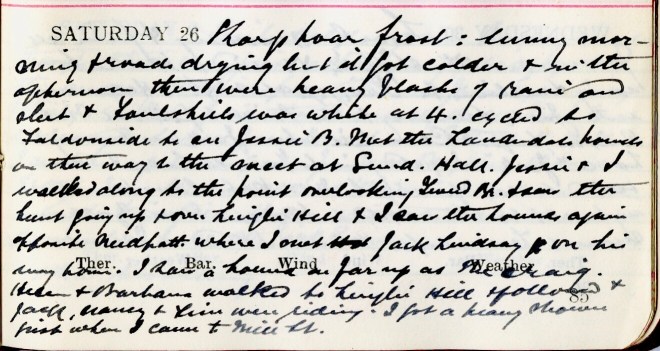 SATURDAY 26 Sharp hoar frost: sunny mor-
ning & roads drying but it got colder & in the
afternoon there were heavy flashes of rain and
sleet & Foulshiels was white at 4. Cycled to
Faldonside to see Jessie B. Met the Lauderdale hounds
on their way to the meet at Sund. Hall. Jessie & I
walked along to the point overlooking Tweed Br. & saw the
hunt going up over Neighb Hill & I saw the hounds again
opposite where I met Jack Lindsay on his
Ther. Bar. Wind Weather
way home. I saw a hound as far up as the Craig.
Helen & Barbara walked to Hill & followed &
85
Jack, Nancy & were riding. I got a heavy shower
just when I came to Mill St.